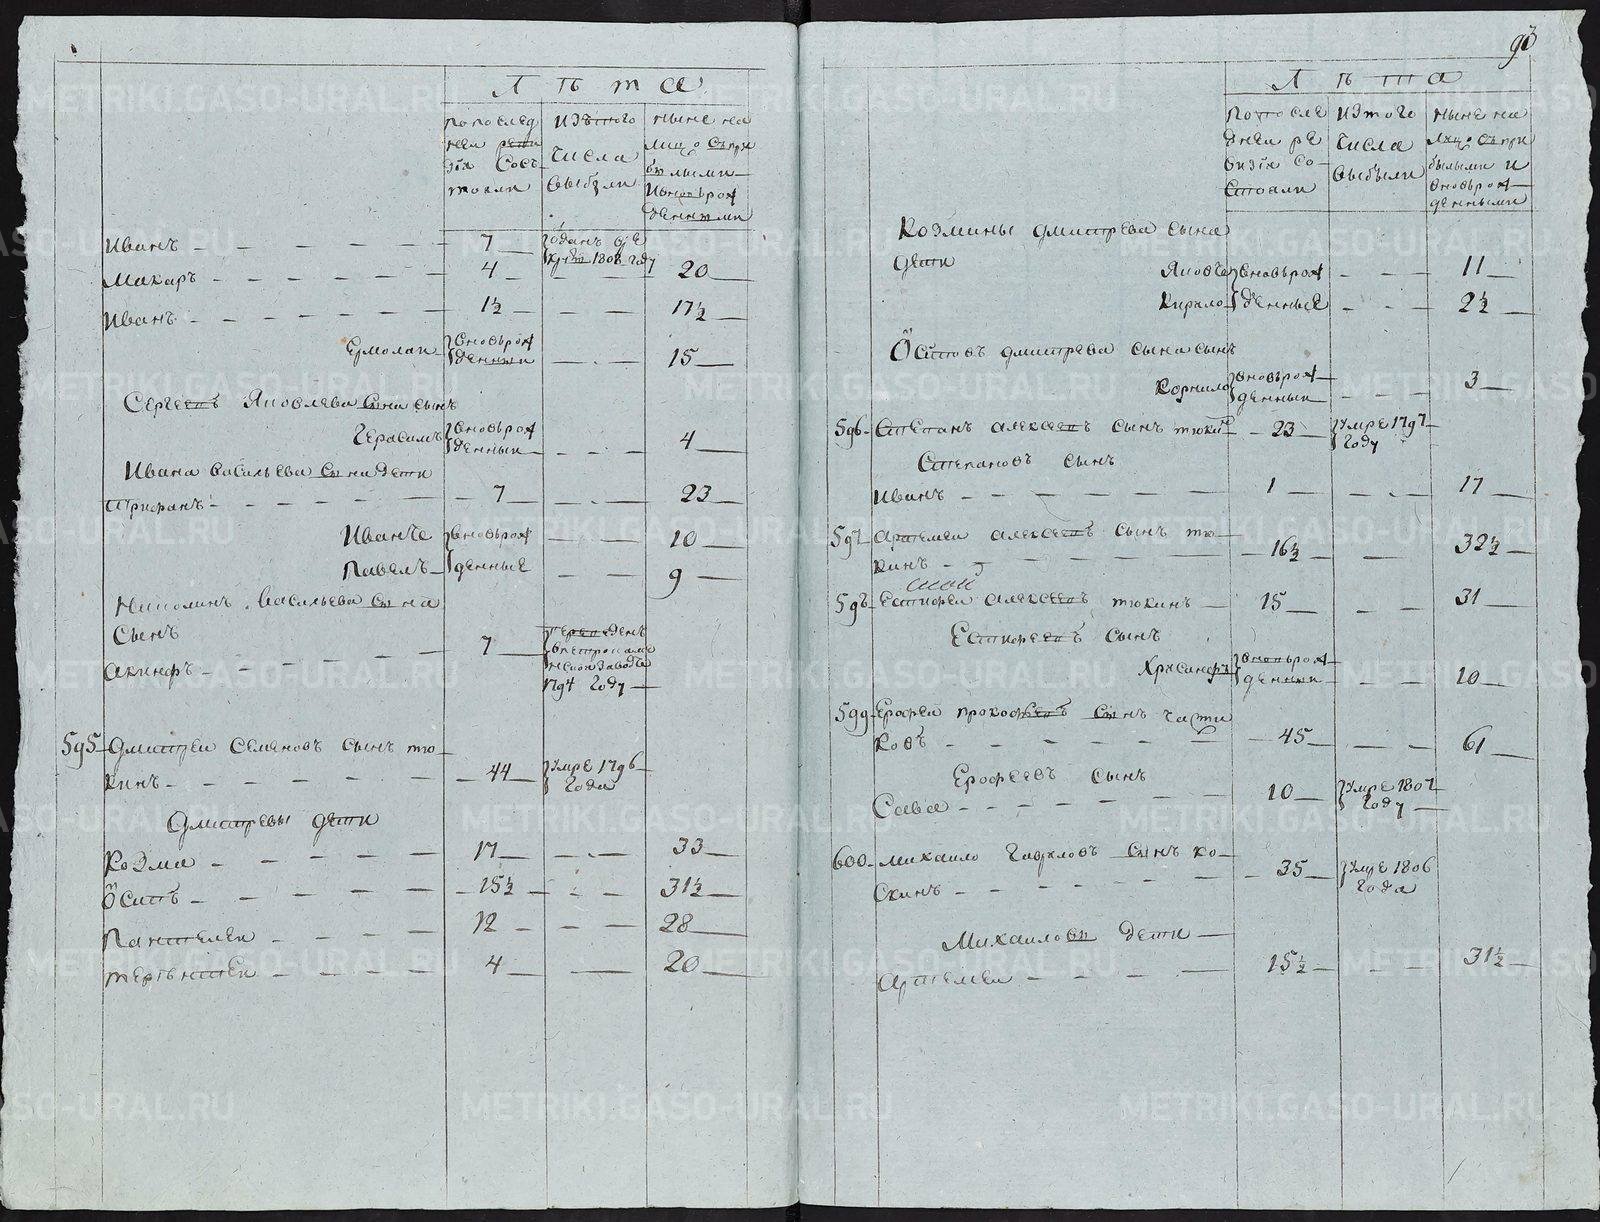 Лѣта
по послед
ней реви
зіи сос
тояли
изъ того
числа
выбыли
ныне на
лицо съ при
былыми
и вновь рож
денными
Иванъ 7 отданъ в ре
круты 1808 году
Макаръ 4 20
Иванъ 1½ 17½
Ермолаи вновь рож
денныи 15
Сергеевъ Яковлева сына сынъ
Герасимъ вновь рож
денныи 4
Ивана Васильева сына дети
Трифанъ 7 23
Иванъ вновь рож 10
Павелъ денные 9
Васильева сына
сынъ
Акинфъ 7 переведенъ
в петрокаме
нской заводъ
1794 году
595 Дмитреи Семеновъ сынъ тю
кинъ 44 умре 1796
года
Дмитревы дети
Козма 17 33
Осипъ 15½ 31½
Пантелеи 12 28
Терентеи 4 20
93
Лѣта
по после
днеи ре
визіи со
стояли
из того
числа
выбыли
ныне на
лицо съ при
былыми и
вновь рож
денными
Козмины Дмитрева сына
дети
Яковъ вновь рож 11
Кирило денные 2½
Осиповъ Дмитрева сына сынъ
Корнило вновь рож
денныи 3
596 Степанъ Алексеевъ сынъ тюкин 23 умре 1797
году
Степановъ сынъ
Иванъ 1 17
597 Артемеи Алексеевъ сынъ тю
кинъ 16½ 32½
598 Естифеи Алексеевъ тюкинъ 15 31
Естифеевъ сынъ
Хрисанфъ вновь рож
денныи 10
599 Ерофеи Прокофьевъ сынъ части
ковъ 45 61
Ерофеевъ сынъ
Сава 10 умре 1807
году
600 Михаило Гавриловъ сынъ ко
скинъ 35 умре 1806
года
Михаиловы дети
Артемеи 15½ 31½
METRIKI.GASO-URAL.RU